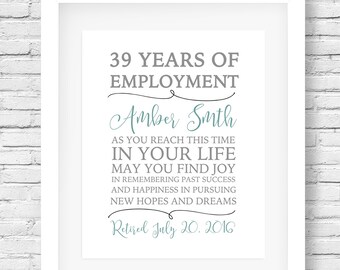 39 YEARS OF
EMPLOYMENT
Amber Smth
AS YOU REACH THIS TIME
IN YOUR LIFE
MAY YOU FIND JOY
IN REMEMBERING PAST SUCCESS
AND HAPPINESS IN PURSUING
NEW HOPES AND DREAMS
Retired July 20, 2016